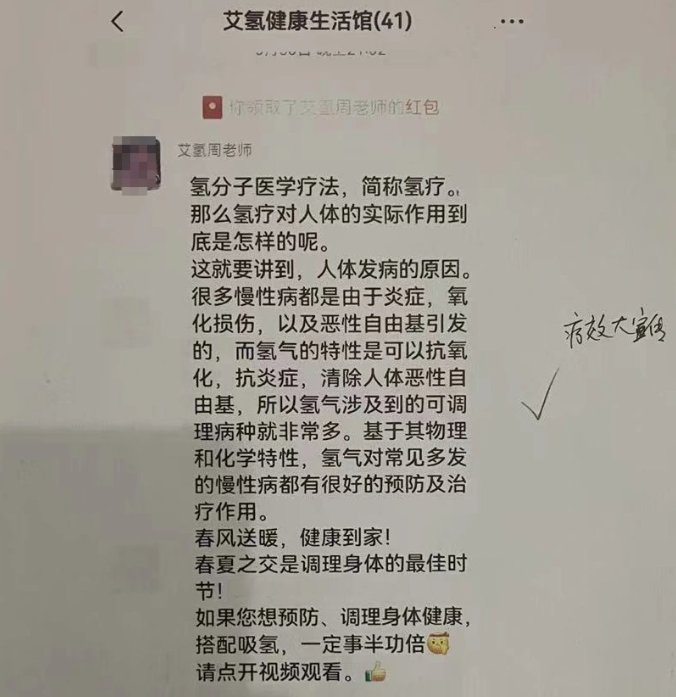 艾氢健康生活馆(41)
你领取了艾氢周老师的红包
艾氢周老师
氢分子医学疗法，简称氢疗。
那么氢疗对人体的实际作用到
底是怎样的呢。
这就要讲到，人体发病的原因。
很多慢性病都是由于炎症，氧
化损伤，以及恶性自由基引发
的，而氢气的特性是可以抗氧
化，抗炎症，清除人体恶性自
由基，所以氢气涉及到的可调
理病种就非常多。基于其物理
和化学特性，氢气对常见多发
的慢性病都有很好的预防及治
疗作用。
春风送暖，健康到家！
春夏之交是调理身体的最佳时
节！
如果您想预防、调理身体健康，
搭配吸氢，一定事半功倍
请点开视频观看。
疗效大宣传